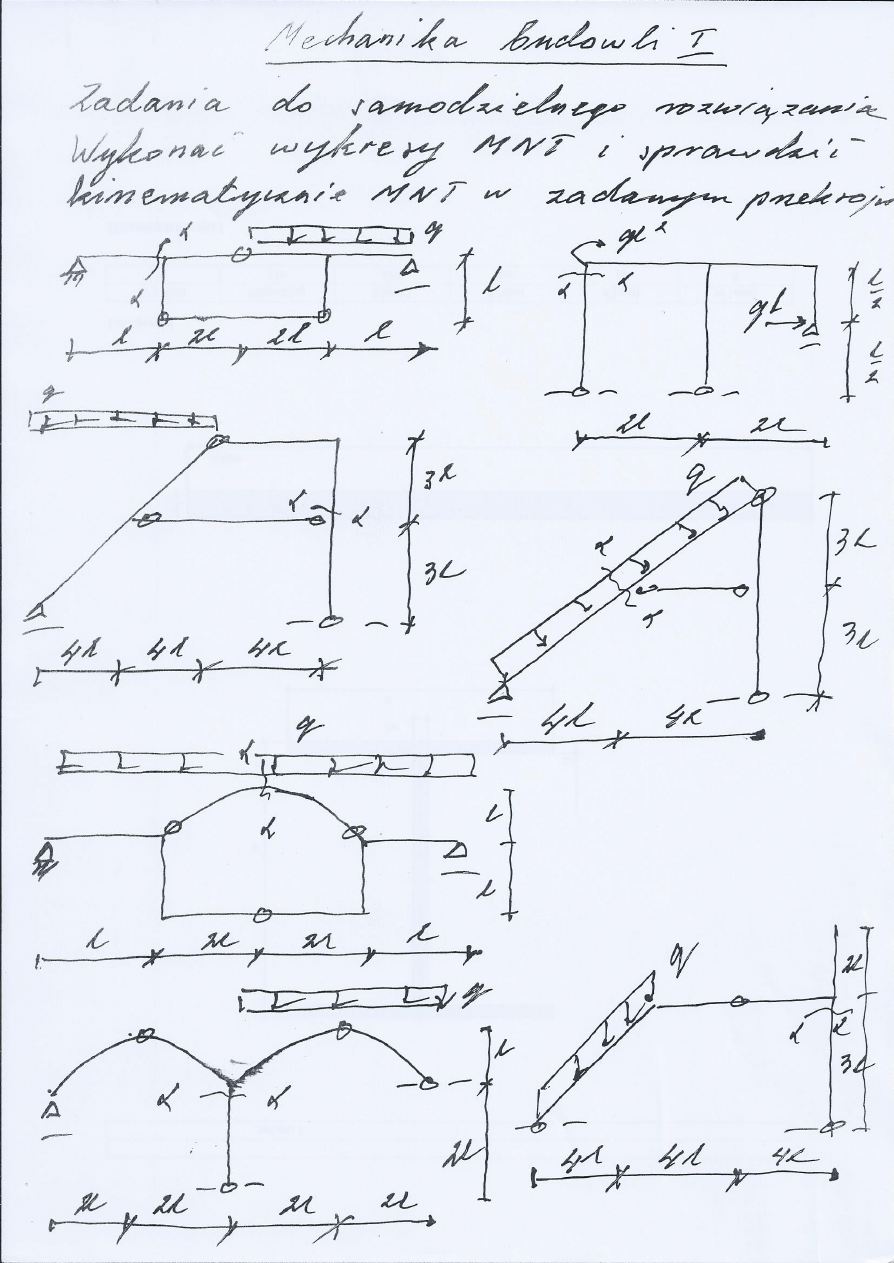 Mechanika budowli I
Zadania do samodzielnego rozwiązania
Wykonać wykresy MNT i sprawdzić
kinematycznie MNT w zadanym przekroju
α q
α l
l 2l 2l l
ql²
α α
ql
l/2
l/2
2l 2l
q
3l
α α
3l
4l 4l 4l
q
α
α
3l
3l
4l 4l
q
α
α
l
l
l 2l 2l l
q
α α
l
2l
2l 2l 2l 2l
q
2l
α α
3l
4l 4l 4l